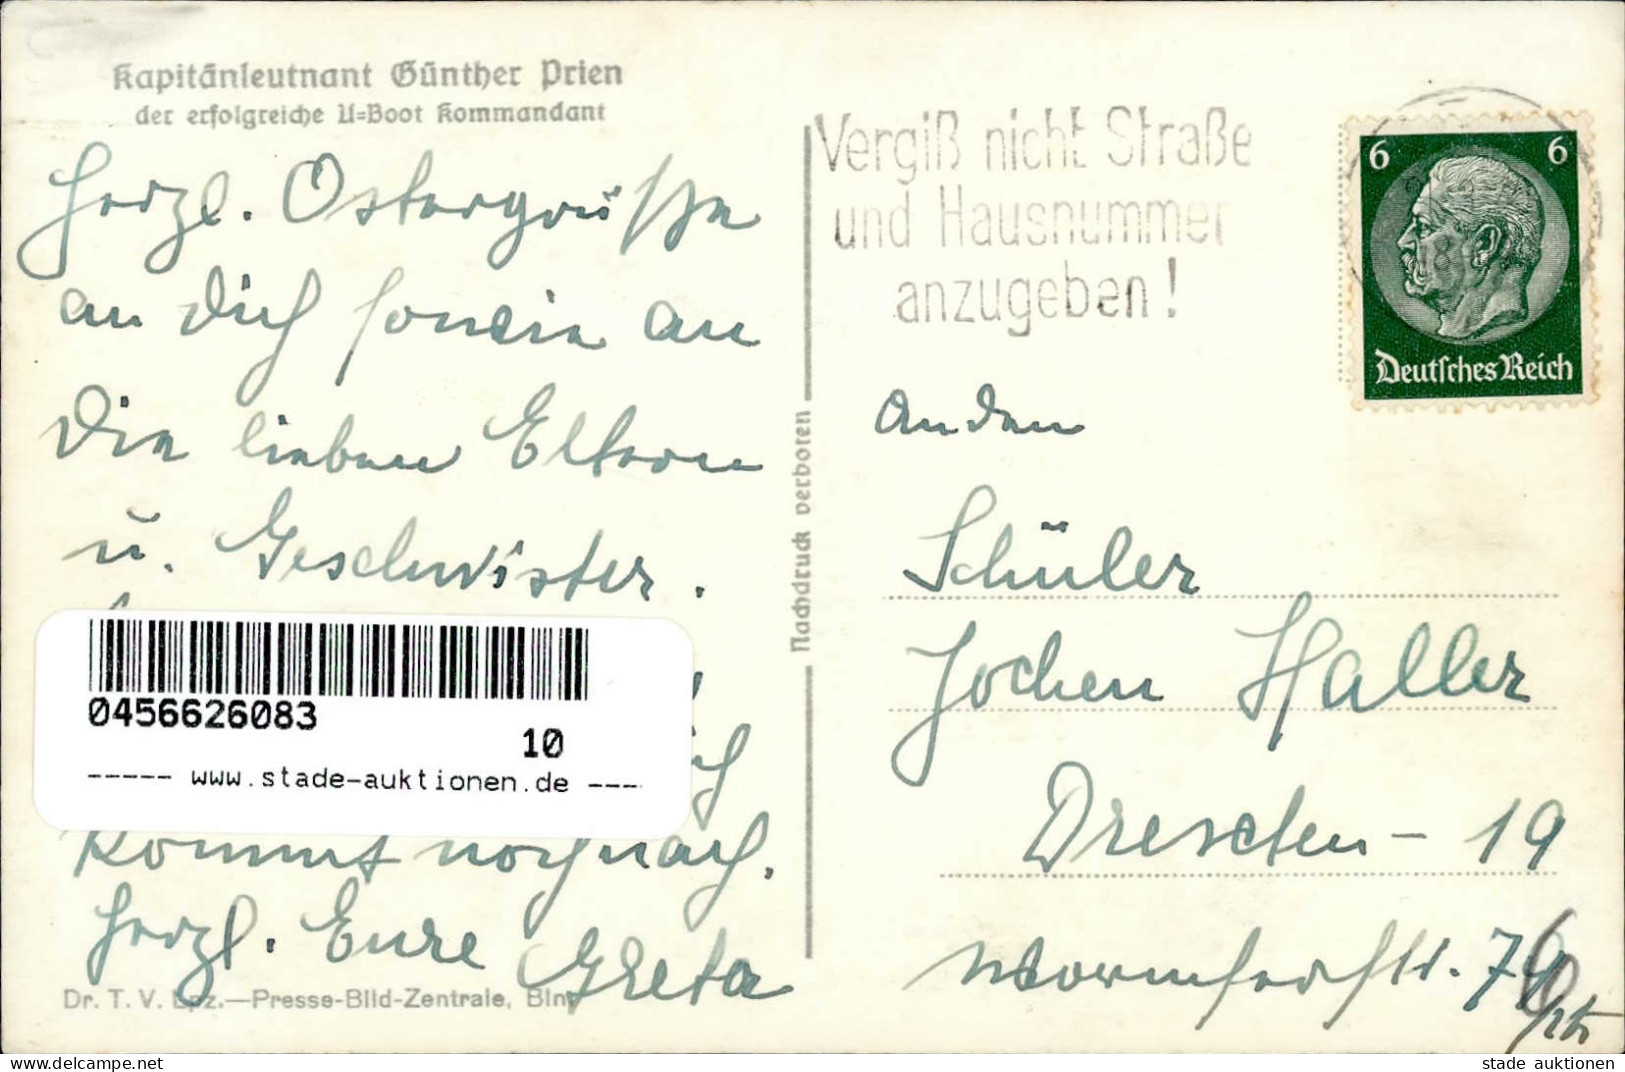 Kapitänleutnant Günther Prien
der erfolgreiche U=Boot Kommandant
Herzl. Ostergrüße
an Dich sowie an
Die lieben Eltern
u. Geschwister.
0456626083
10
----- www.stade-auktionen.de ----
kommt noch nach.
Herzl. Eure Greta
Dr. T. V. Lpz.—Presse-Bild-Zentrale, Bln
Nachdruck verboten
Vergiß nicht Straße
und Hausnummer
anzugeben!
6 6
Deutsches Reich
An den
Schüler
Jochen Haller
Dresden - 19
Wormserstr.
stade auktionen
www.delcampe.net
stade auktionen